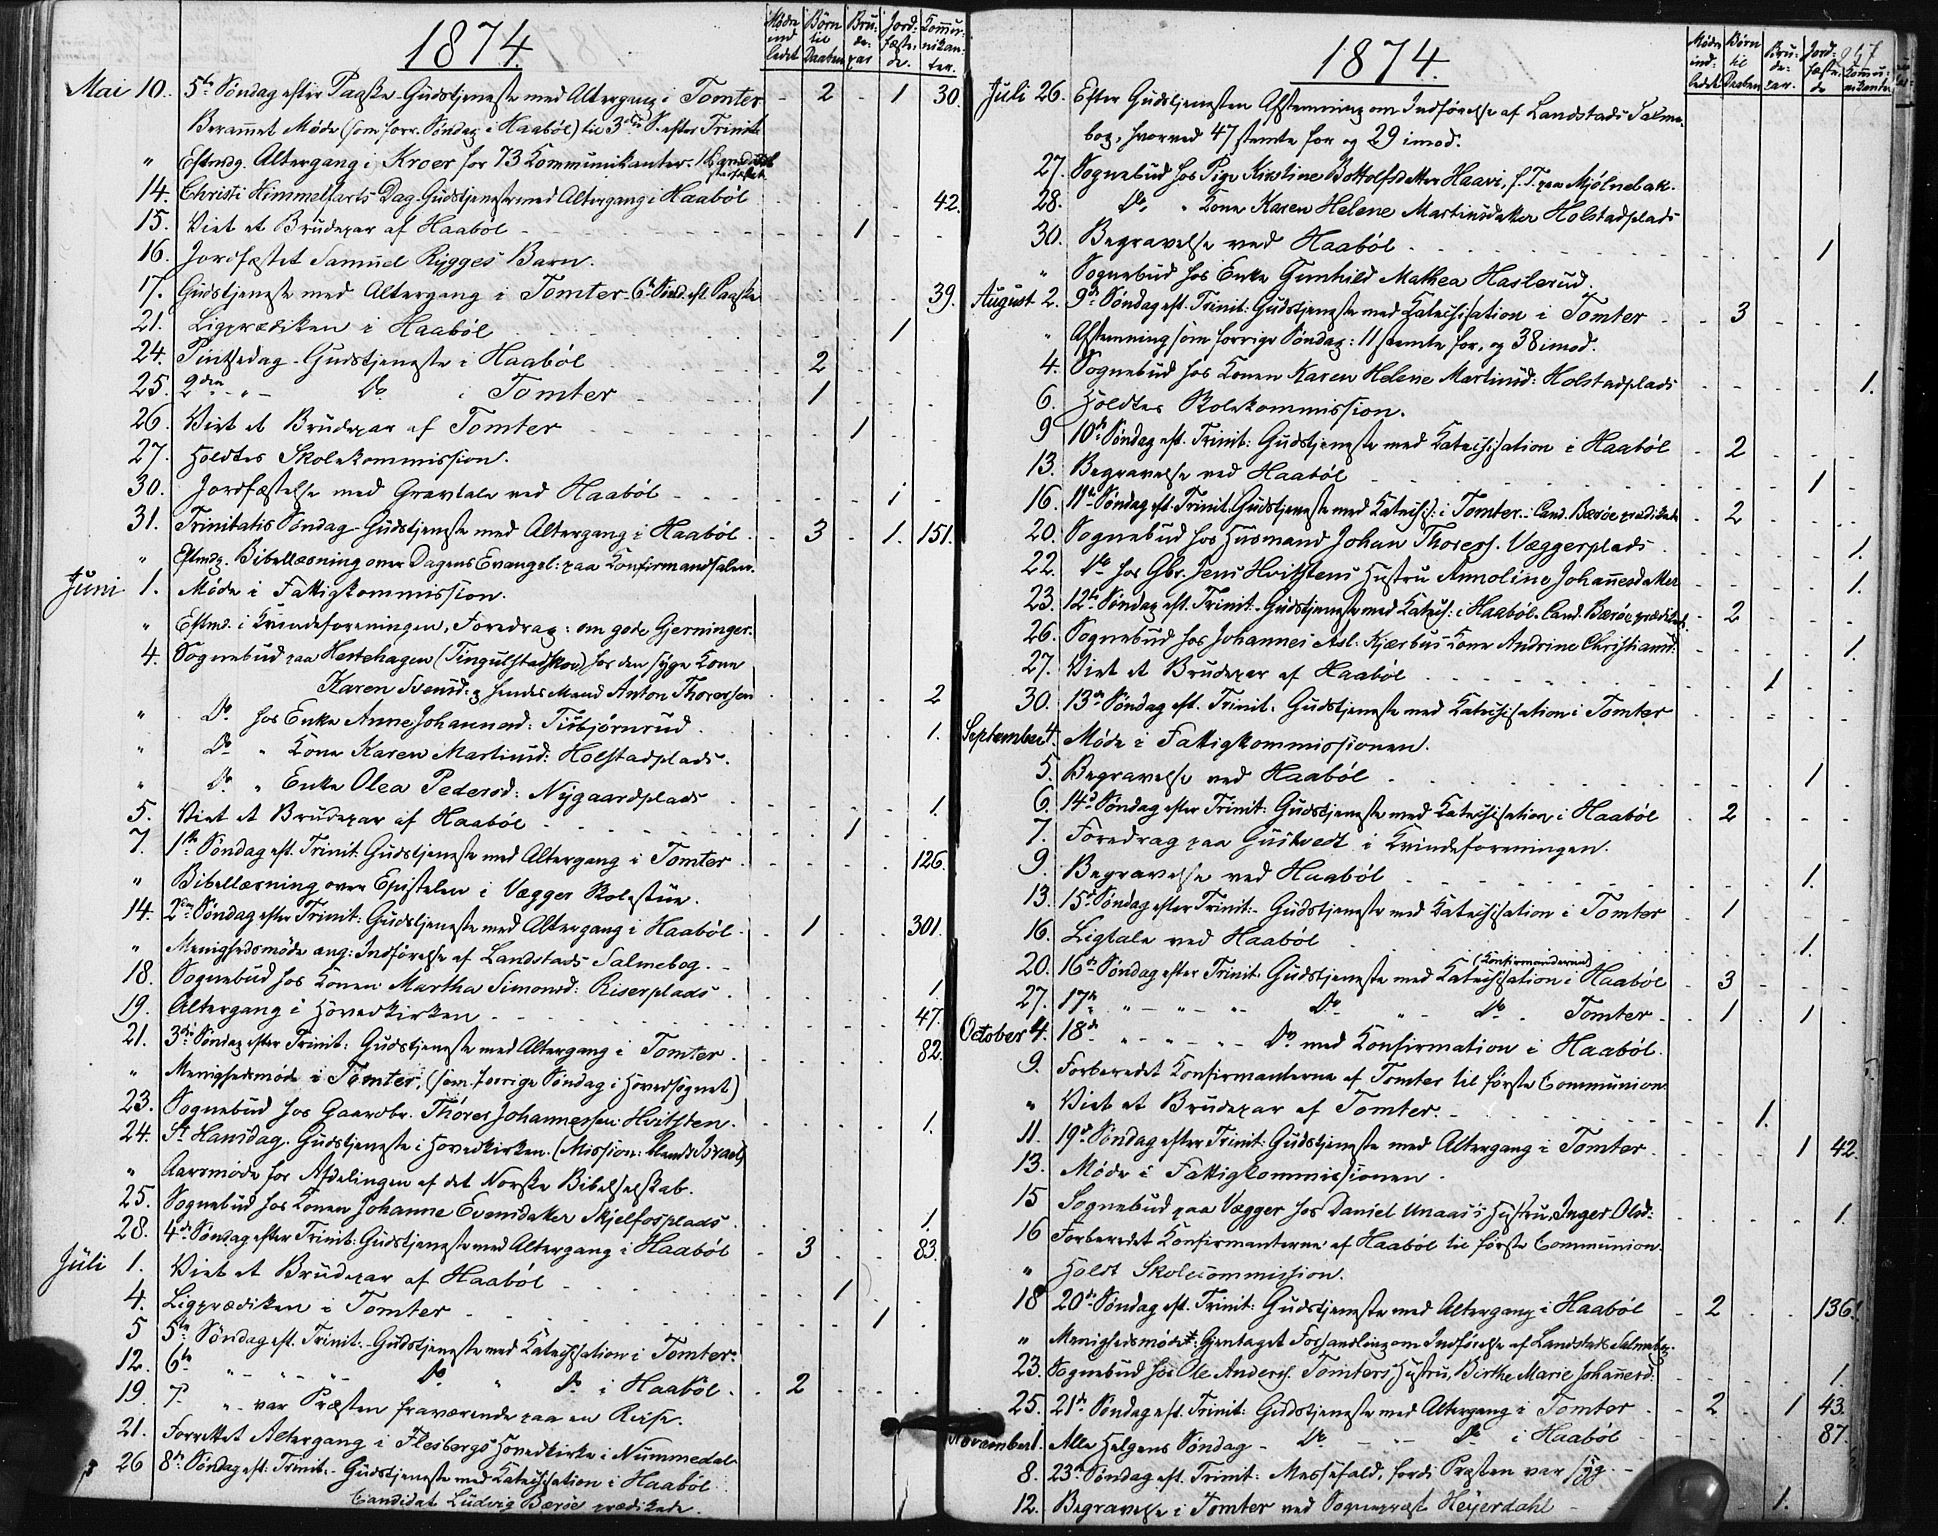 1874.
Møde indledet
Børn til Daaben
Brudepar
Jordfæstede.
Kommunikanter.
Mai 10. 5te Søndag efter Paaske - Gudstjeneste med Altergang i Tomter - 2 - 1 30.
Berammet Møde (som forr. Søndag i Haabøl) til 3die S. efter Trinit:
" Eftmdg. Altergang i Kroer for 73 Kommunikanter.
14. Christi Himmelfarts Dag - Gudstjeneste med Altergang i Haabøl 42.
15. Viet et Brudepar af Haabøl 1
16. Jordfæstet Samuel Rygges Barn.
17. Gudstjeneste med Altergang i Tomter - 6te Sønd. eft. Paaske 39.
21. Ligprædiken i Haabøl 1
24. Pintsedag - Gudstjeneste i Haabøl 2
25. 2den " - Do i Tomter 1
26. Viet et Brudepar af Tomter 1
27. Holdtes Skolekommission.
30. Jordfæstelse med Gravtale ved Haabøl 1
31. Trinitatis Søndag - Gudstjeneste med Altergang i Haabøl 3 - 1. 151.
" Eftmdg. Bibellæsning over Dagens Evangel: paa Konfirmandsalen.
Juni 1. Møde i Fattigkommission.
" Eftmd. i Kvindeforeningen, Foredrag: om gode Gjerninger.
4. Sognebud paa Hestehagen (Tingulstadskov) hos den syge Kone
Karen Svensd: og hendes Mand Anton Thoresen 2
" Do hos Enke Anne Johannesd: Tisbjørnrud 1.
" Do " Kone Karen Martinsd: Holstadplads.
" Do " Enke Olea Pedersd: Nygaardplads 1.
5. Viet et Brudepar af Haabøl 1
7. 1ste Søndag eft. Trinit: Gudstjeneste med Altergang i Tomter 126.
" Bibellæsning over Epistelen i Vægger Skolestue.
14. 2den Søndag efter Trinit: Gudstjeneste med Altergang i Haabøl 1 301.
" Menighedsmøde ang: Indførelse af Landstads Salmebog.
18. Sognebud hos Konen Martha Simonsd: Riserplads 1
19. Altergang i Hovedkirken 47.
21. 3die Søndag efter Trinit: Gudstjeneste med Altergang i Tomter 82.
" Menighedsmøde i Tomter, (som forrige Søndag i Hovedsognet)
23. Sognebud hos Gaardbr. Thores Johannessen Hvitsten. 1.
24. St Hansdag. Gudstjeneste i Hovedkirken. (Mission: blandt Israel)
" Aarsmøde for Afdelingen af det Norske Bibelselskab.
25. Sognebud hos Konen Johanne Evensdatter Skjelfosplads 1.
28. 4de Søndag efter Trinit: Gudstjeneste med Altergang i Haabøl 3 83.
Juli 1. Viet et Brudepar af Haabøl 1
4. Ligprædiken i Tomter 1
5 5te Søndag eft. Trinit - Gudstjeneste med Katechisation i Tomter.
12. 6te " " Do " Do i Haabøl 2
19. 7. " - var Præsten fraværende paa en Reise.
21. Forrettet Altergang i Flesbergs Hovedkirke i Nummedal
26 8de Søndag eft: Trinit: - Gudstjeneste med Katechisation i Haabøl
Candidat Ludvig Bærøe prædikede.
1874.
247
Møde indledet
Børn til Daaben
Brudepar.
Jordfæstede
Kommunikanter
Juli 26. Efter Gudstjenesten Afstemning om Indførelse af Landstads Salmebog, hvorved 47 stemte for og 29 imod.
27. Sognebud hos Pige Kirstine Bottolfsdatter Haavi, f. T. paa Mjølnebak.
28. Do " Kone Karen Helene Martinsdatter Holstadplads
30. Begravelse ved Haabøl 1
" Sognebud hos Enke Gunhild Mathea Haslerud.
August 2. 9de Søndag eft. Trinit: Gudstjeneste med Katechisation i Tomter 3
" Afstemning som forrige Søndag: 11 stemte for, og 38 imod.
4. Sognebud hos Konen Karen Helene Martinsd: Holstadplads 1.
6. Holdtes Skolekommission.
9 10de Søndag eft. Trinit: Gudstjeneste med Katechisation i Haabøl 2
13. Begravelse ved Haabøl 1
16. 11te Søndag eft. Trinit. Gudstjeneste med Katechis: i Tomter - Cand. Bærøe prædikede 2
20. Sognebud hos Husmand Johan Thoress. Væggerplads 1.
22. Do hos Gbr. Jens Hvitstens Hustru Annoline Johannesdatter 1.
23. 12te Søndag eft. Trinit: Gudstjeneste med Katechis: i Haabøl. Cand. Bærøe prædikede. 2
26. Sognebud hos Johannes Asl. Kjærbus Kone Andrine Christiansd: 1.
27. Viet et Brudepar af Haabøl 1
30. 13de Søndag eft. Trinit. Gudstjeneste med Katechisation i Tomter
September 4. Møde i Fattigkommissionen.
5. Begravelse ved Haabøl 1
6. 14de Søndag efter Trinit: Gudstjeneste med Katechisation i Haabøl 2
7. Foredrag paa Guslvedt i Kvindeforeningen.
9. Begravelse ved Haabøl 1.
13. 15de Søndag efter Trinit: Gudstjeneste med Katechisation i Tomter 1
16. Ligtale ved Haabøl 1.
(Konfirmanderne)
20. 16de Søndag efter Trinit: Gudstjeneste med Katechisation i Haabøl 3
27. 17de " " " Do " Do Tomter 1 1
October 4. 18de " " " Do med Konfirmation i Haabøl.
9. Forberedet Konfirmanterne af Tomter til første Communion
" Viet et Brudepar af Tomter. 1.
11. 19de Søndag efter Trinit: Gudstjeneste med Altergang i Tomter 1 42
13. Møde i Fattigkommissionen.
15 Sognebud paa Vægger hos Daniel Unaass Hustru, Inger Olsd: 1.
16 Forberedet Konfirmanterne af Haabøl til første Communion.
" Holdt Skolecommission.
18 20de Søndag eft. Trinit: Gudstjeneste med Altergang i Haabøl 2 136.
" Menighedsmøde: Gjentaget Forhandling om Indførelse af Landstads Salmebog.
23. Sognebud hos Ole Anders. Tomters Hustru, Birthe Marie Johannesd. 1.
25. 21de Søndag eft. Trinit: Gudstjeneste med Altergang i Tomter 2 1 43.
November 1. Alle Helgens Søndag - Do - Do i Haabøl 87.
8. 23de Søndag eft. Trinit: Messefald, fordi Præsten var syg.
12. Begravelse i Tomter ved Sognepræst Heyerdahl 1.